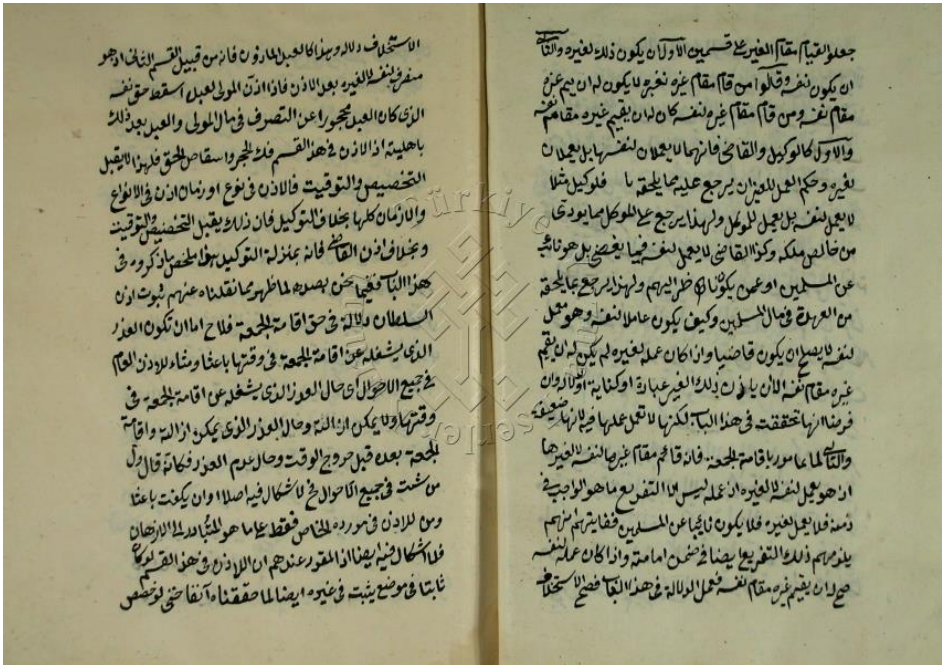 جعلوا القيام مقام الغير على قسمين الاول ان يكون ذلك لغيره والثانى
ان يكون لنفسه وقالوا من قام مقام غيره لغيره لا يكون له ان يقيم غيره
مقام نفسه ومن قام مقام غيره لنفسه كان له ان يقيم غيره مقام نفسه
والاول كالوكيل والقاضى فانهما لا يعملان لنفسهما بل يعملان
لغيره وحكم العمل للغير ان يرجع عليه بما يلحقه فالوكيل مثلا
لا يعمل لنفسه بل يعمل للموكل ولهذا يرجع على الموكل مما يودى
من خالص ملكه وكذا القاضى لا يعمل لنفسه فيما يقضى بل هو نائب
عن المسلمين او عمن يكون ولهذا يرجع بما يلحقه
من العهدة فى مال المسلمين وكيف يكون عاملا لنفسه وهو عمل
لنفسه لا يصلح ان يكون قاضيا واذا كان عمله لغيره لم يكن له ان يقيم
غيره مقام نفسه الا ان يأذن ذلك الغير عبارة او كناية او دلالة وان
فرضنا انها تحققت فى هذا الباب لكنها لا تعمل عملها فيه لانها ضعيفة
والثانى كالمأمور باقامة الجمعة فانه قام مقام غيره لنفسه لا لغيره
اذ هو يعمل لنفسه لا لغيره اذ عمله ليس الا التفريع ما هو الواجب فى
ذمته فلا يعمل لغيره فلا يكون نائبا عن المسلمين فغايتهم انهم
يلزمهم ذلك التفريع ايضا فى ضمن امامته واذا كان عمله لنفسه
صح له ان يقيم غيره مقام نفسه فعمل الدلالة فى هذا الباب فصح الاستخلاف
الاستخلاف دلالة وهذا كالعبد المأذون فانه من قبيل القسم الثانى اذ هو
متصرف لنفسه لا لغيره بعد الاذن فاذا اذن المولى لعبده اسقط حق نفسه
الذى كان العبد محجورا عن التصرف فى مال المولى والعبد بعد ذلك
باهليته اذ الاذن فى هذا القسم فك الحجر واسقاط الحق فلهذا لا يقبل
التخصيص والتوقيت فالاذن فى نوع او زمان اذن فى الانواع
والازمان كلها بخلاف التوكيل فان ذلك يقبل التخصيص والتوقيت
وبخلاف اذن القاضى فانه بمنزلة التوكيل هذا ملخص ما ذكروه فى
هذا الباب ففيما نحن بصدده لما ظهر مما نقلناه عنهم ثبوت اذن
السلطان دلالة فى حق اقامة الجمعة فلاح اما ان تكون العذر
الذى يشغله عن اقامة الجمعة فى وقتها باعثا ومنشاء للاذن العام
فى جميع الاحوال اى حال العذر الذى يشغله عن اقامة الجمعة فى
وقتها ولا يمكن ازالته وحال العذر الذى يمكن ازالته واقامة
الجمعة بعده قبل خروج الوقت وحال عدم العذر فكانه قال ول
من شئت فى جميع الاحوال فح لا اشكال فيه اصلا او ان يكون باعثا
للاذن فى مورده الخاص فقط على ما هو المتبادر الى الاذهان
فلا اشكال فيه ايضا اذ المقرر عندهم ان الاذن فى هذا القسم لو كان
ثابتا فى موضع يثبت فى غيره ايضا لما حققناه آنفا حتى لو خصص